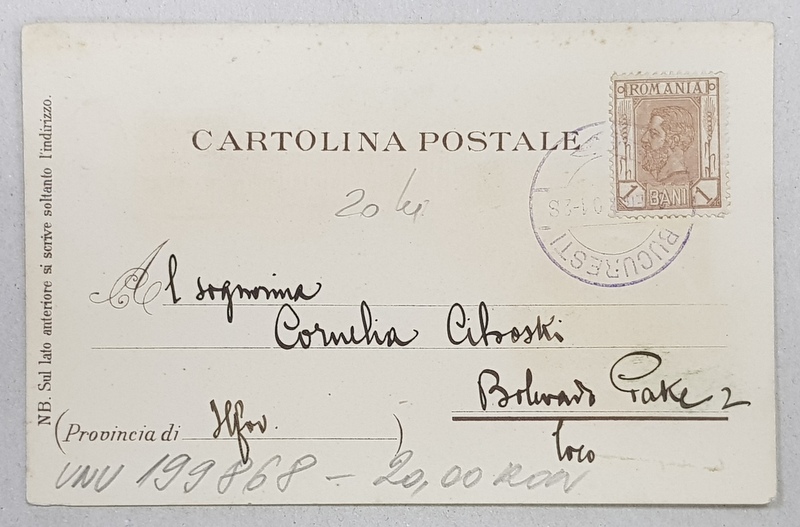 NB. Sul lato anteriore si scrive soltanto l'indirizzo.
CARTOLINA POSTALE
ROMANIA
1 BANI 1
BUCURESTI
20 lei
Al sognorina
Cornelia Ciboski
Bolevard Pake 2
loco
(Provincia di Ilfov.)
VNV 199868 - 20,00 RON